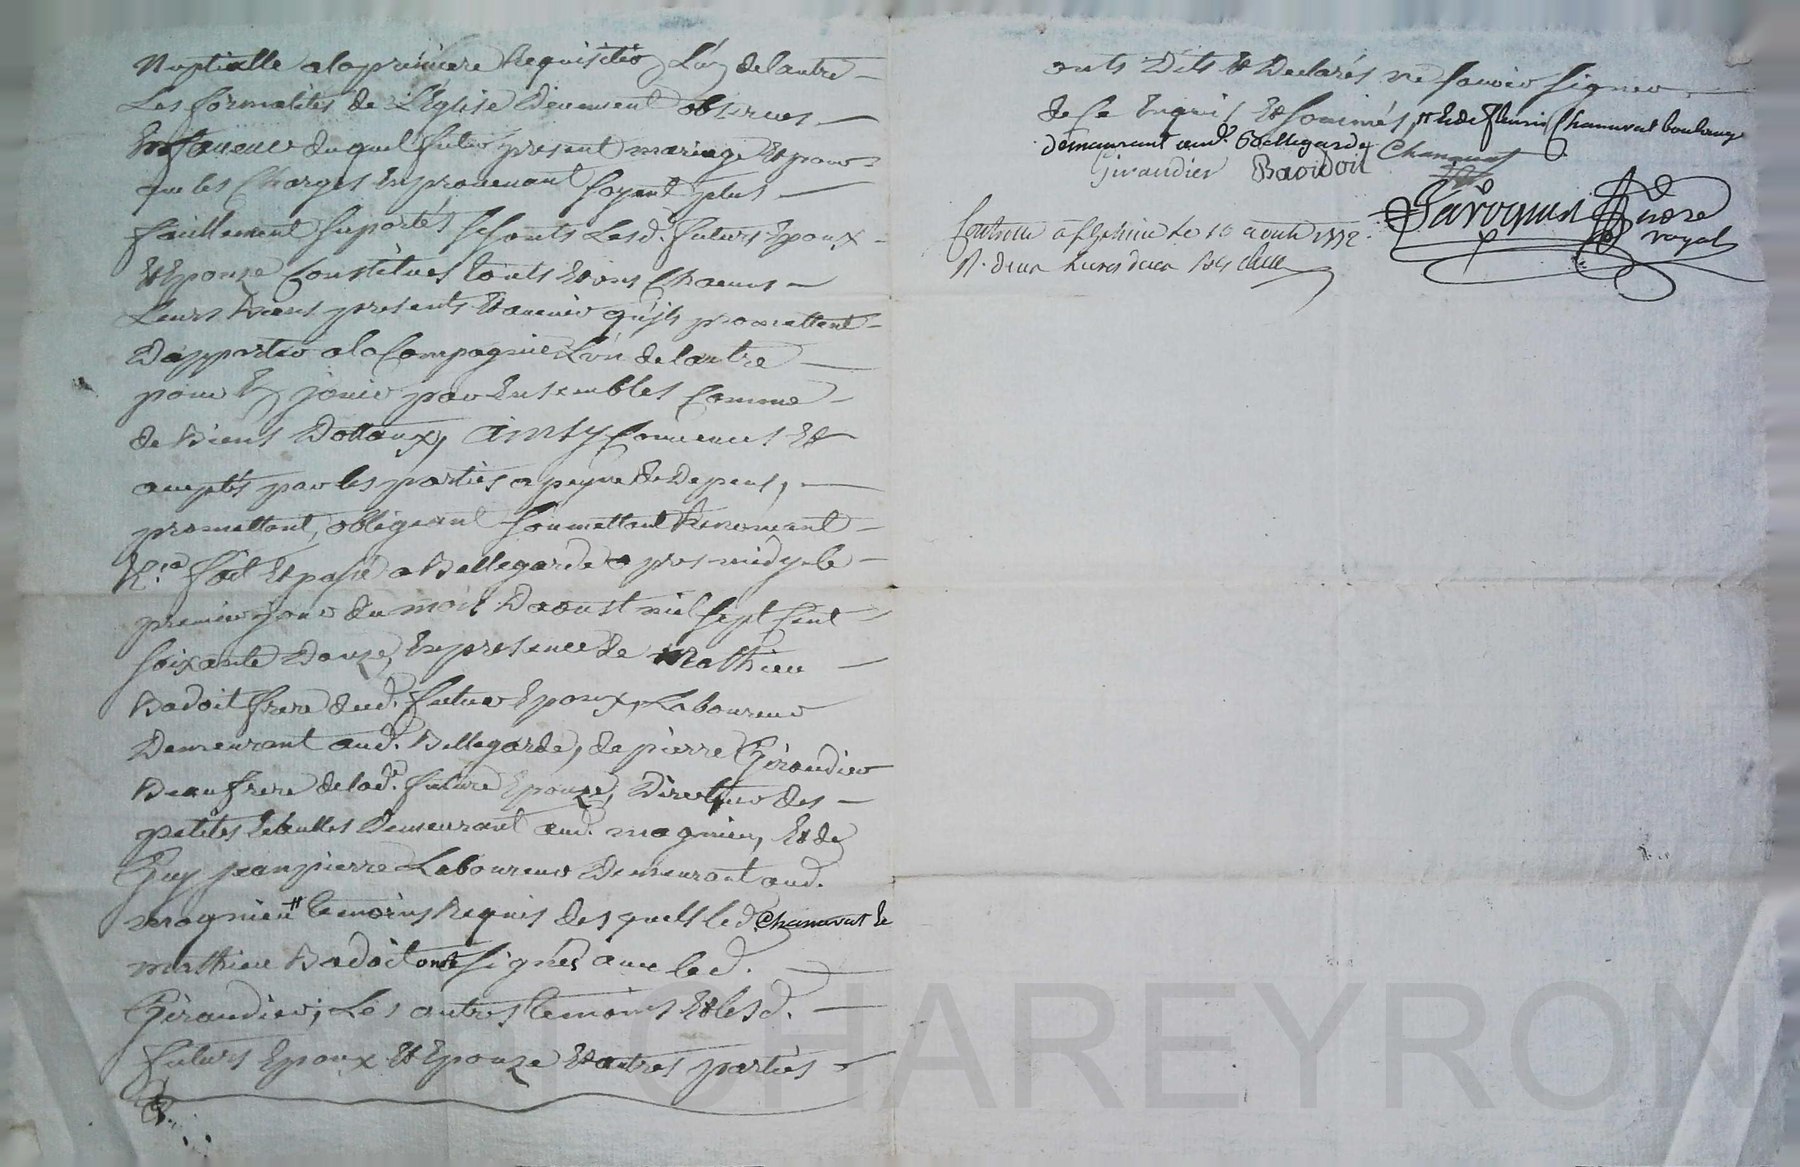 Nuptialle a la première Requisition L'un de lautre
Les formalités de L'Eglise Deuement observees
En faveur du quel futur présent mariage Et pour
que les Charges En provenant soyent plus
facillement suportés se sonts Lesd. futurs Epoux
Et Epouze Constitues touts Et uns Chacuns
Leurs Biens presents Et avenir qu'ils promettent
D'apporter a la Compagnie L'un de lautre
pour En jouir par Ensembles Comme
de Biens Dottaux, ainsy Convenus Et
acceptés par les parties a peyne de Depens,
promettant, obligeant soumettant Renoncant
&.ca fait Et passé a Bellegarde apres midy le
premier jour du mois D'aoust mil sept Cent
soixante Douze, En presence de Mathieu
Badoit frere dud. futur Epoux, Laboureur
Demeurant aud. Bellegarde, de pierre Giraudier
Beaufrere de lad. future Epouze, Directeur des
petites Demeurant aud. magnieu, Et de
Guy jean pierre Laboureur Demeurant aud.
magnieu # temoins Requis des quels led. Chanavat Et
mathieu Badoit ont signés avec led.
Giraudier, Les autres temoins Et lesd.
futurs Epoux Et Epouze Et autres parties
onts Dits Et Declarés ne savoir signer
de Ce Enquis Et sommés, # Et de fleurie Chanavat boulanger
demeurant aud. Bellegarde Chanavat
Giraudier Baoidoit
Notre
royal
a le 10 août 1772
CHAREYRON